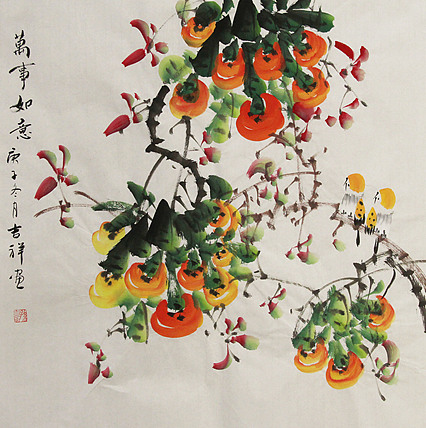 萬事如意
庚子冬月吉祥画